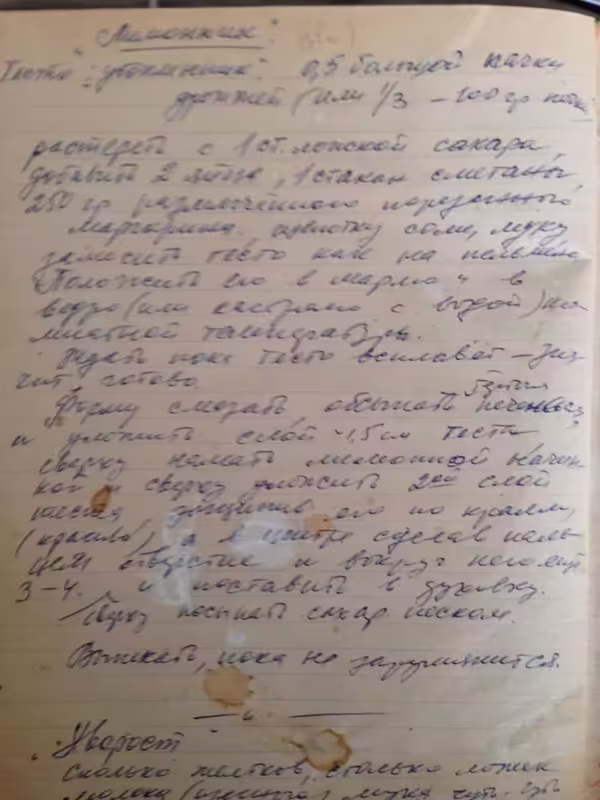 "Лимонник"
Тесто: "утопленник": 0,5 большой пачки
дрожжей (или 1/3 – 100 гр пачки
растереть с 1 ст. ложкой сахара,
добавить 2 яйца, 1 стакан сметаны,
250 гр размягченного порезанного
маргарина. щепотку соли, муку
замесить тесто как на пельмени
Положить его в марлю и в
ведро (или кастрюлю с водой) ком
натной температуры.
Ждать пока тесто всплывет – зна
чит готово.
Форму смазать, обсыпать печеньем
и уложить слой ~1,5 см теста
сверху намазать лимонной начин
кой и сверху уложить 2ой слой
теста, защипив его по краям,
(красиво), а в центре сделав паль
цем отверстие и вокруг него ещё
3–4. и поставить в духовку.
Сверху посыпать сахар песком.
Выпекать, пока не зарумянится.
— " —
Хворост
Сколько желтков, столько ложек
молока мука